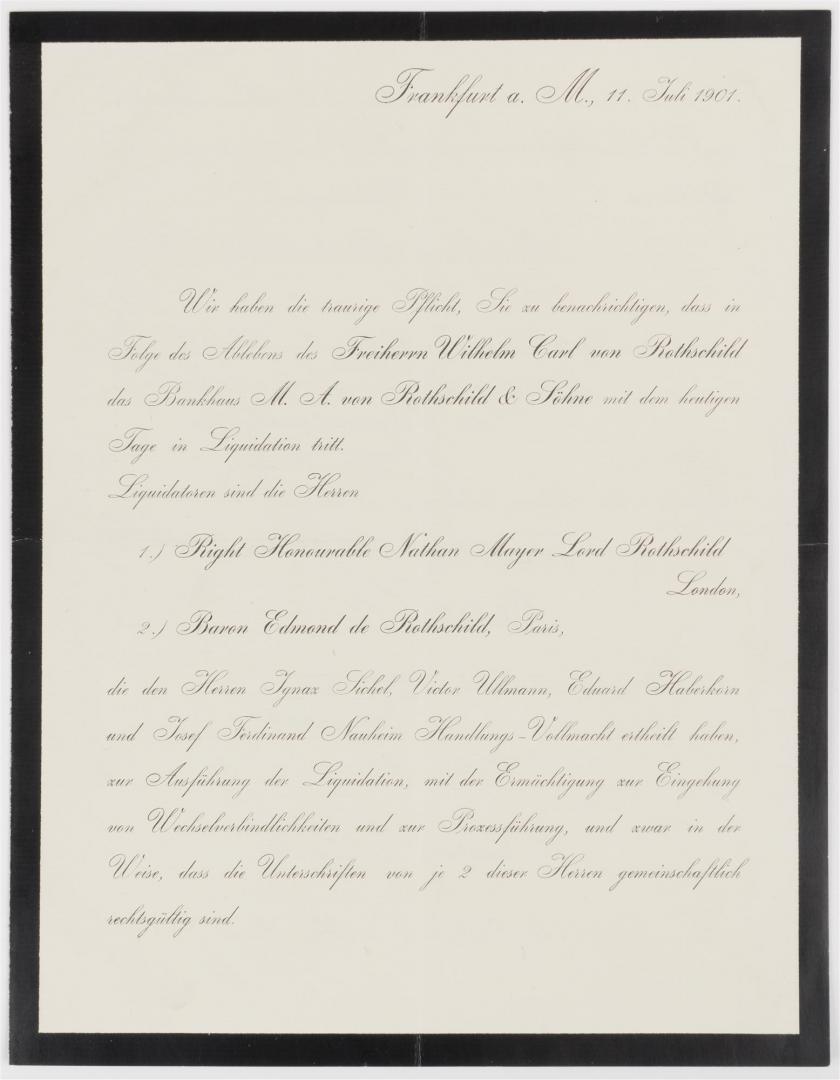 Frankfurt a. M., 11. Juli 1901.
Wir haben die traurige Pflicht, Sie zu benachrichtigen, dass in
Folge des Ablebens des Freiherrn Wilhelm Carl von Rothschild
das Bankhaus M. A. von Rothschild & Söhne mit dem heutigen
Tage in Liquidation tritt.
Liquidatoren sind die Herren
1.) Right Honourable Nathan Mayer Lord Rothschild
London,
2.) Baron Edmond de Rothschild, Paris,
die den Herren Ignaz Sichel, Victor Ullmann, Eduard Haberkorn
und Josef Ferdinand Nauheim Handlungs-Vollmacht ertheilt haben,
zur Ausführung der Liquidation, mit der Ermächtigung zur Eingehung
von Wechselverbindlichkeiten und zur Prozessführung, und zwar in der
Weise, dass die Unterschriften von je 2 dieser Herren gemeinschaftlich
rechtsgültig sind.